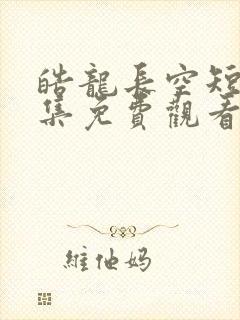 皓龍長空短
集免費觀看
維他媽